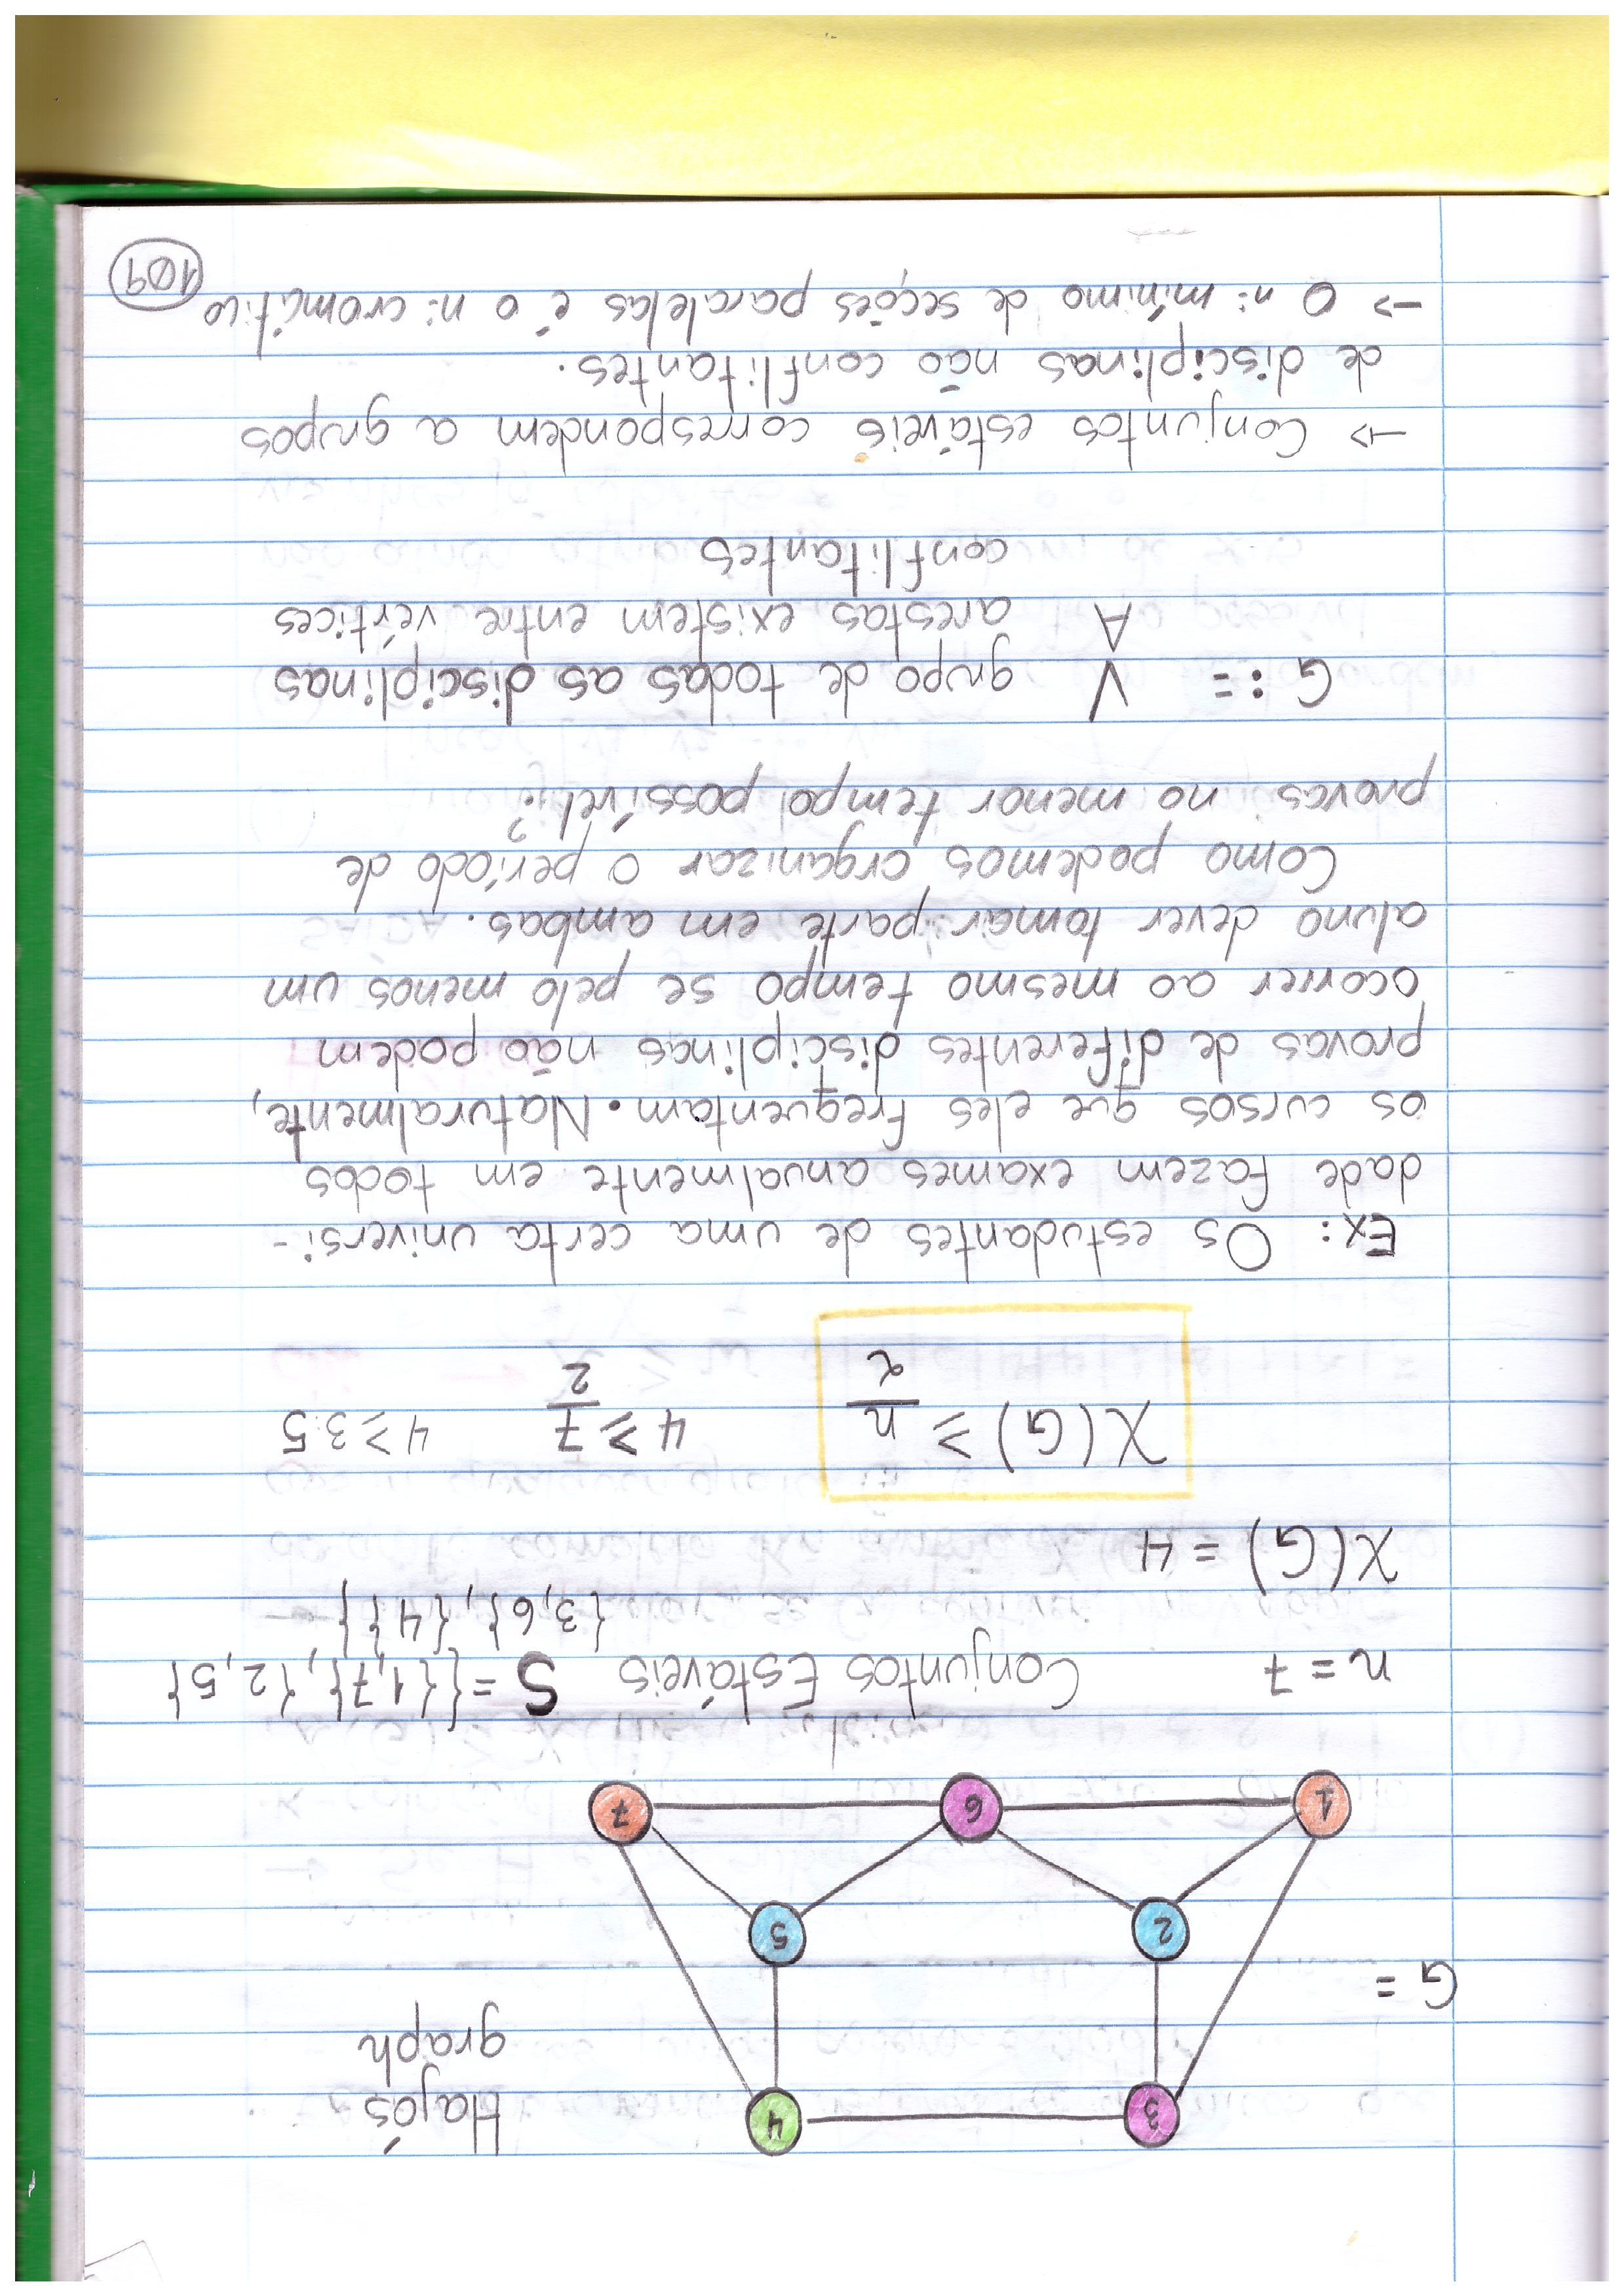 3 4 Hajós
graph
G =
2 5
1 6 7
n = 7 Conjuntos Estáveis S = {{1,7}, {2,5}
{3,6}, {4}}
χ(G) = 4
χ(G) ≥ n/α 4 ≥ 7/2 4 ≥ 3.5
Ex: Os estudantes de uma certa universi-
dade fazem exames anualmente em todos
os cursos que eles frequentam. Naturalmente,
provas de diferentes disciplinas não podem
ocorrer ao mesmo tempo se pelo menos um
aluno dever tomar parte em ambas.
Como podemos organizar o período de
provas no menor tempo possível?
G := V grupo de todas as disciplinas
A arestas existem entre vértices
conflitantes
→ Conjuntos estáveis correspondem a grupos
de disciplinas não conflitantes.
→ O n: mínimo de seções paralelas é o n: cromático
109